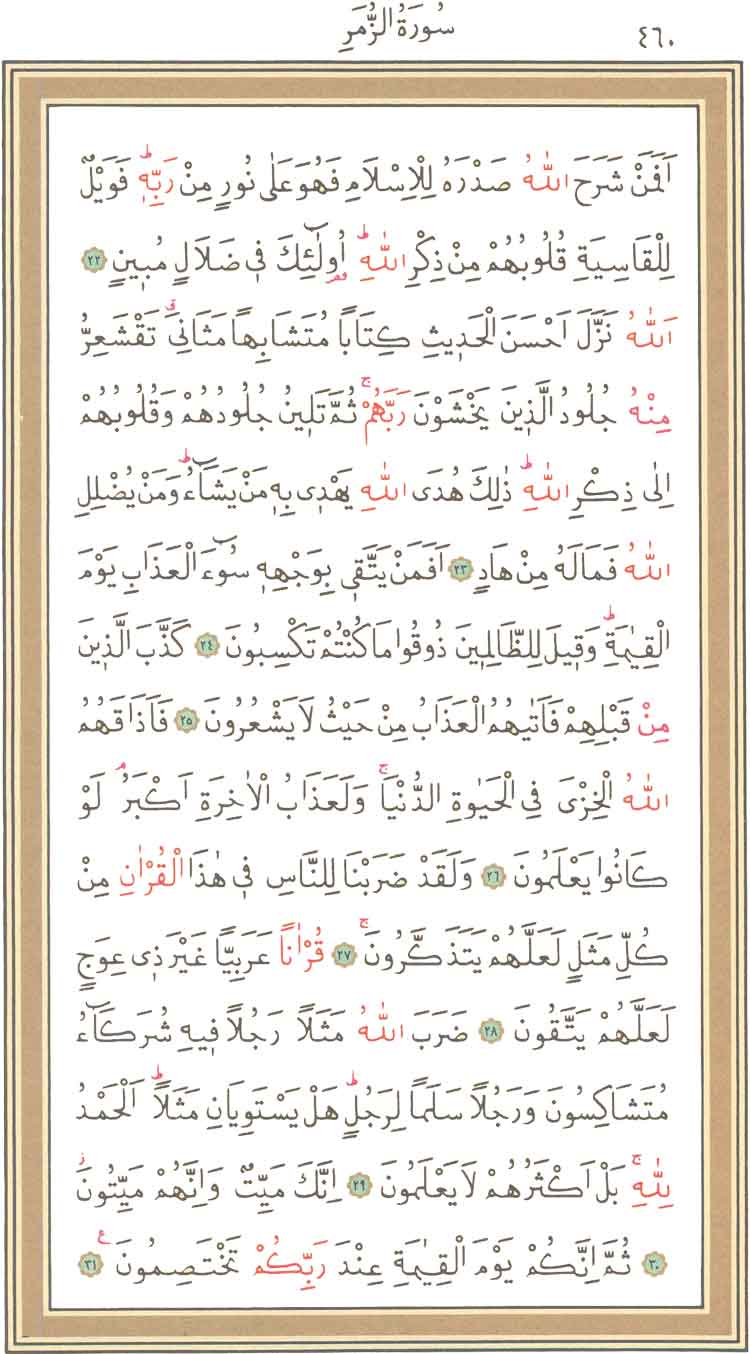 سُورَةُ الزُّمَرِ ٤٦٠
اَفَمَنْ شَرَحَ اللّٰهُ صَدْرَهُ لِلْاِسْلَامِ فَهُوَ عَلٰى نُورٍ مِنْ رَبِّه۪ۜ فَوَيْلٌ
لِلْقَاسِيَةِ قُلُوبُهُمْ مِنْ ذِكْرِ اللّٰهِۜ اُو۬لٰٓئِكَ ف۪ي ضَلَالٍ مُب۪ينٍ ﴿٢٢﴾
اَللّٰهُ نَزَّلَ اَحْسَنَ الْحَد۪يثِ كِتَابًا مُتَشَابِهًا مَثَانِيَۗ تَقْشَعِرُّ
مِنْهُ جُلُودُ الَّذ۪ينَ يَخْشَوْنَ رَبَّهُمْۚ ثُمَّ تَل۪ينُ جُلُودُهُمْ وَقُلُوبُهُمْ
اِلٰى ذِكْرِ اللّٰهِۜ ذٰلِكَ هُدَى اللّٰهِ يَهْد۪ي بِه۪ مَنْ يَشَٓاءُۜ وَمَنْ يُضْلِلِ
اللّٰهُ فَمَا لَهُ مِنْ هَادٍ ﴿٢٣﴾ اَفَمَنْ يَتَّق۪ي بِوَجْهِه۪ سُٓوءَ الْعَذَابِ يَوْمَ
الْقِيٰمَةِۜ وَق۪يلَ لِلظَّالِم۪ينَ ذُوقُوا مَا كُنْتُمْ تَكْسِبُونَ ﴿٢٤﴾ كَذَّبَ الَّذ۪ينَ
مِنْ قَبْلِهِمْ فَاَتٰيهُمُ الْعَذَابُ مِنْ حَيْثُ لَا يَشْعُرُونَ ﴿٢٥﴾ فَاَذَاقَهُمُ
اللّٰهُ الْخِزْيَ فِي الْحَيٰوةِ الدُّنْيَاۚ وَلَعَذَابُ الْاٰخِرَةِ اَكْبَرُۢ لَوْ
كَانُوا يَعْلَمُونَ ﴿٢٦﴾ وَلَقَدْ ضَرَبْنَا لِلنَّاسِ ف۪ي هٰذَا الْقُرْاٰنِ مِنْ
كُلِّ مَثَلٍ لَعَلَّهُمْ يَتَذَكَّرُونَۚ ﴿٢٧﴾ قُرْاٰنًا عَرَبِيًّا غَيْرَ ذ۪ي عِوَجٍ
لَعَلَّهُمْ يَتَّقُونَ ﴿٢٨﴾ ضَرَبَ اللّٰهُ مَثَلًا رَجُلًا ف۪يهِ شُرَكَٓاءُ
مُتَشَاكِسُونَ وَرَجُلًا سَلَمًا لِرَجُلٍۜ هَلْ يَسْتَوِيَانِ مَثَلًاۜ اَلْحَمْدُ
لِلّٰهِۚ بَلْ اَكْثَرُهُمْ لَا يَعْلَمُونَ ﴿٢٩﴾ اِنَّكَ مَيِّتٌ وَاِنَّهُمْ مَيِّتُونَۘ
﴿٣٠﴾ ثُمَّ اِنَّكُمْ يَوْمَ الْقِيٰمَةِ عِنْدَ رَبِّكُمْ تَخْتَصِمُونَ۟ ﴿٣١﴾